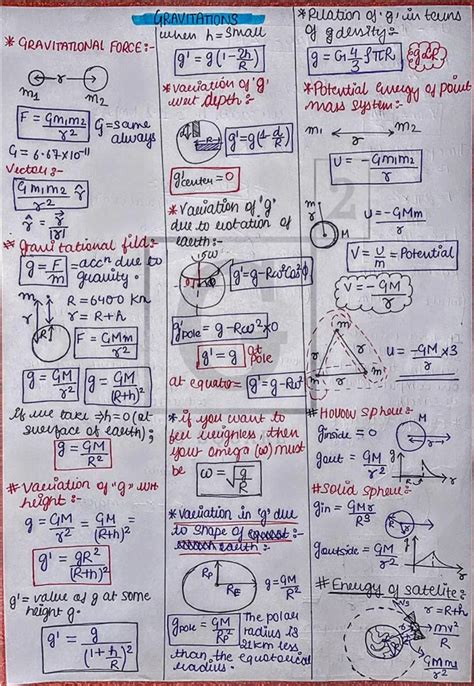 GRAVITATIONS
* GRAVITATIONAL FORCE:-
r
m1 m2
F = Gm1m2/r²
G = same always
G = 6.67×10^-11
Vector:-
Gm1m2/r² r̂
r̂ = r⃗/|r⃗|
* Gravitational fild:-
g = F/m = accⁿ due to gravity.
m m
R = 6400 Km
r = R+h
R
F = GMm/r²
g = GM/r²
g = GM/(R+h)²
If we take → h=0 (at
surface of earth);
g = GM/R²
# Variation of "g" wrt
height:-
g = GM/r² = GM/(R+h)²
g' = gR²/(R+h)²
g' = value of g at some
height g.
g' = g/(1+h/R)²
when h = small
g' = g(1-2h/R)
* Variation of 'g'
wrt depth:-
R
g' = g(1-d/R)
g'center = 0
* Variation of 'g'
due to rotation of
earth:-
g' = g-Rω²Cos²ϕ
g'pole = g-Rω²×0
g' = g at pole
at equator g' = g-Rω²
* if you want to
feel weighless, then
your omega (ω) must
be ω = √g/R
* Variation in 'g' due
to shape of
earth:-
Rp
RE
g = GM/R²
gpole = GM/Rp²
The polar
radius is
21km less
than the equatorical
radius.
* Relation of 'g' in terms
of g density:-
g = G 4/3 ρπR,
g∝ρ
* Potential Energy of point
mass system:-
m1 r m2
U = -Gm1m2/r
m
r
M
U = -GMm/r
V = U/m = Potential
V = -GM/r
m
r r
m r m
U = -GM/r ×3
# Hollow sphere:-
M
ginside = 0
gout = GM/r²
g
r
# Solid sphere:-
gin = GMr/R³
R
goutside = GM/r²
# Energy of satelite:-
r = R+h
mv²/r
GMm/r²